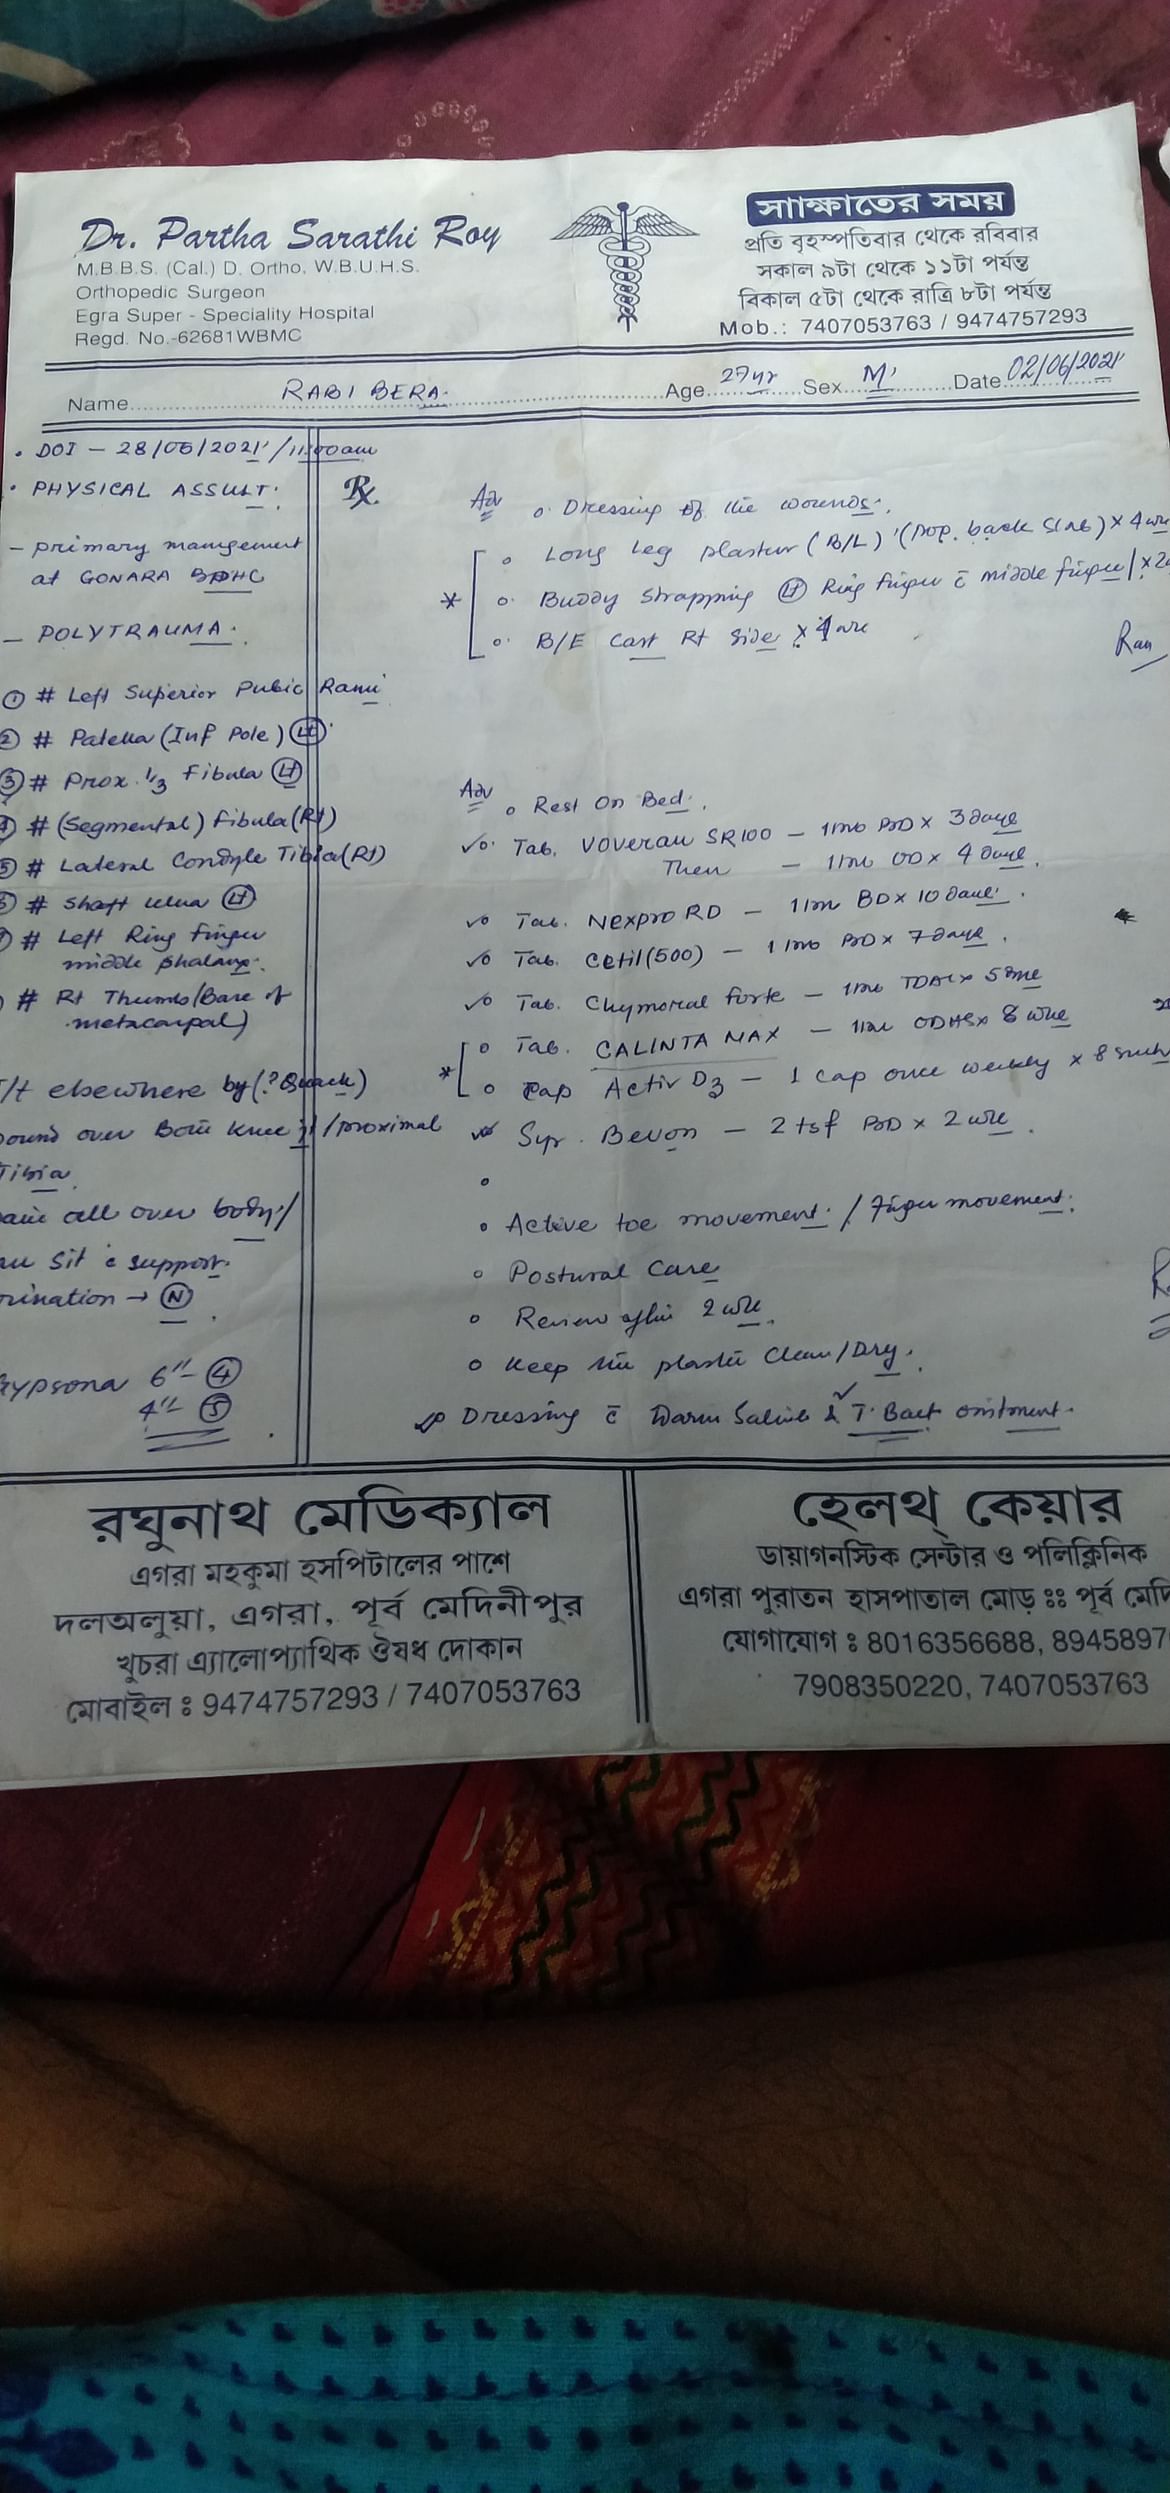 Dr. Partha Sarathi Roy
M.B.B.S. (Cal.) D. Ortho, W.B.U.H.S.
Orthopedic Surgeon
Egra Super - Speciality Hospital
Regd. No.-62681WBMC
সাাক্ষাতের সময়
প্রতি বৃহস্পতিবার থেকে রবিবার
সকাল ৯টা থেকে ১১টা পর্যন্ত
বিকাল ৫টা থেকে রাত্রি ৮টা পর্যন্ত
Mob.: 7407053763 / 9474757293
Name RABI BERA Age 27yr Sex M Date 02/06/2021
• DOI - 28/05/2021 / 11:00am
• PHYSICAL ASSULT.
- primary mangement
at GONARA BPHC
- POLYTRAUMA.
① # Left Superior Pubic Rami
② # Patella (Inf Pole) Lt
③ # Prox. 1/3 Fibula Lt
# (Segmental) Fibula (Rt)
# Lateral Condyle Tibia (Rt)
# Shaft ulna Lt
# Left Ring Finger
middle phalanx.
# Rt Thumb (Base of
metacarpal)
elsewhere by (? Quack)
over Both knee / proximal
Tibia
all over body /
Sit c̄ support.
→ N
6" - ④
4" - ⑤
Rx
Adv
o Dressing of the wounds.
o Long Leg plaster (B/L) (Pop. back Slab) x 4 wk
* o Buddy Strapping Lt Ring finger c̄ middle finger / x
o B/E Cast Rt Side x 4 wk
Adv
o Rest On Bed.
o Tab. VOVERAN SR100 - 1 tab BD x 3 days
Then - 1 tab OD x 4 days.
o Tab. NEXPRO RD - 1 tab BD x 10 days.
o Tab. Cetil (500) - 1 tab BD x 7 days.
o Tab. Chymoral forte - 1 tab x 5 days
* o Tab. CALINTA MAX - 1 tab x 8 wk
o Cap Activ D3 - 1 cap once weekly x 8
Syr. Bevon - 2 tsf BD x 2 wk.
• Active toe movement. / Finger movement.
o Postural Care
o Review after 2 wk.
o Keep the plaster Clean/Dry.
Dressing c̄ Warm Saline & T. Bact ointment.
রঘুনাথ মেডিক্যাল
এগরা মহকুমা হসপিটালের পাশে
দলঅলুয়া, এগরা, পূর্ব মেদিনীপুর
খুচরা এ্যালোপ্যাথিক ঔষধ দোকান
মোবাইল ঃ 9474757293 / 7407053763
হেলথ্ কেয়ার
ডায়াগনস্টিক সেন্টার ও পলিক্লিনিক
এগরা পুরাতন হাসপাতাল মোড় ঃঃ পূর্ব মেদি
যোগাযোগ ঃ 8016356688, 8945897
7908350220, 7407053763